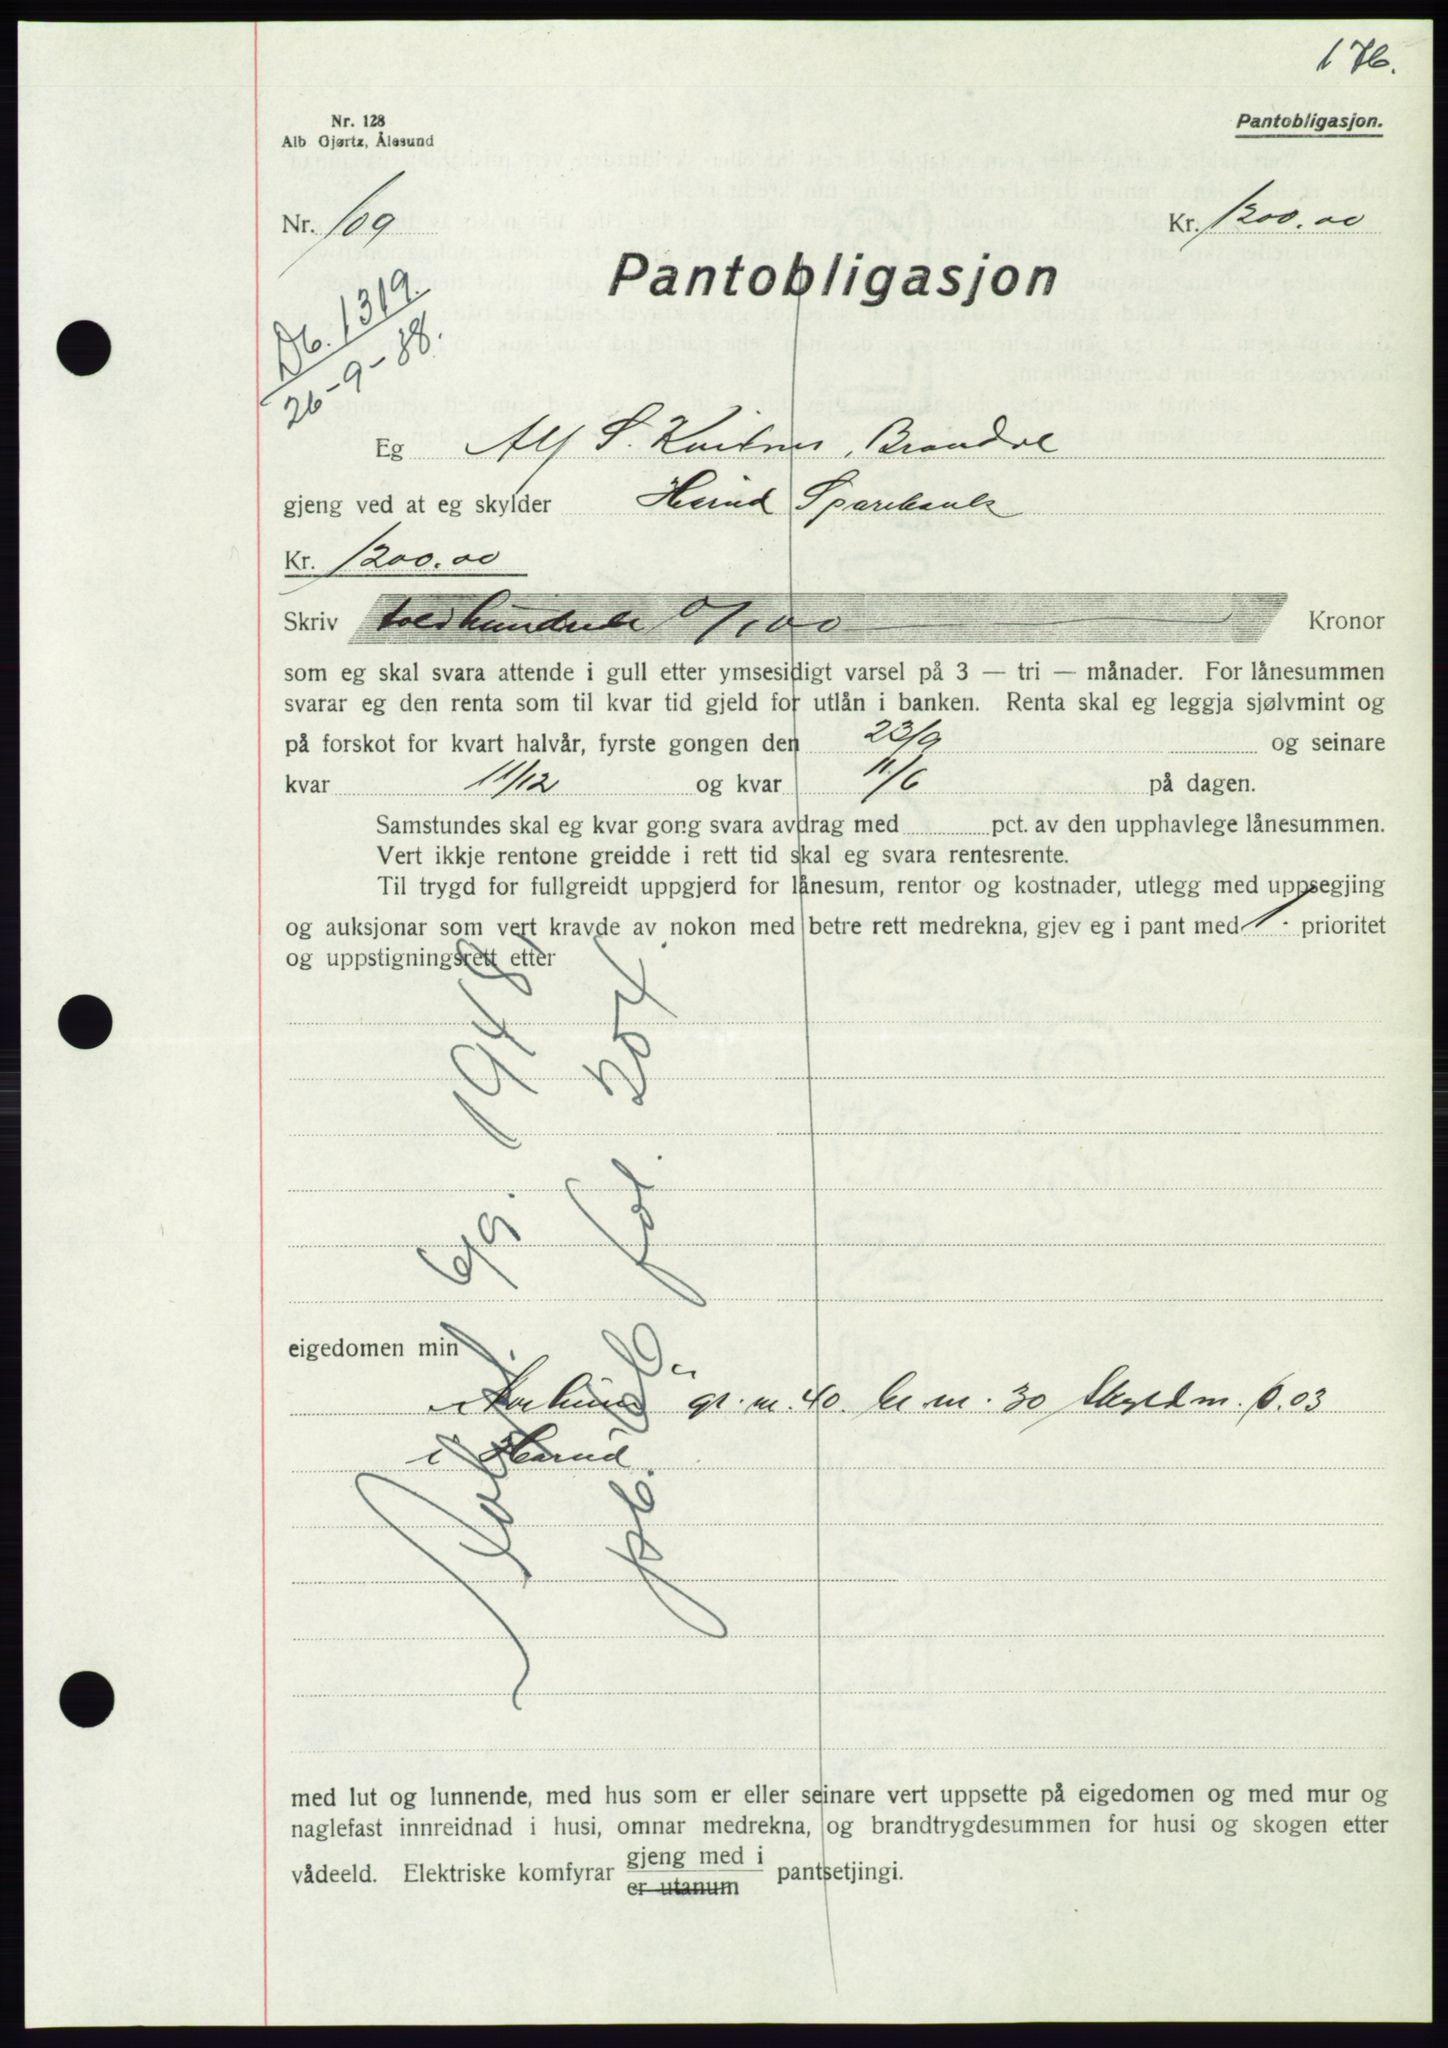 176.
Nr. 128
Alb Gjørtz, Ålesund
Pantobligasjon.
Nr. 109
Kr. 1200.00
Pantobligasjon
Db. 1319.
26-9-38.
Eg Alf S. Brandal
gjeng ved at eg skylder Hareid Sparebank
Kr. 1200.00
Skriv tolvhundrede 0/100 Kronor
som eg skal svara attende i gull etter ymsesidigt varsel på 3 — tri — månader. For lånesummen
svarar eg den renta som til kvar tid gjeld for utlån i banken. Renta skal eg leggja sjølvmint og
på forskot for kvart halvår, fyrste gongen den 23/9 og seinare
kvar 11/12 og kvar 11/6 på dagen.
Samstundes skal eg kvar gong svara avdrag med pct. av den upphavlege lånesummen.
Vert ikkje rentone greidde i rett tid skal eg svara rentesrente.
Til trygd for fullgreidt uppgjerd for lånesum, rentor og kostnader, utlegg med uppsegjing
og auksjonar som vert kravde av nokon med betre rett medrekna, gjev eg i pant med 1. prioritet
og uppstigningsrett etter
6/9. 1948,
pb. fol. 204.
eigedomen min
gr. nr. 40. br. nr. 30 Skyldm. 0.03
i Hareid
med lut og lunnende, med hus som er eller seinare vert uppsette på eigedomen og med mur og
naglefast innreidnad i husi, omnar medrekna, og brandtrygdesummen for husi og skogen etter
vådeeld. Elektriske komfyrar gjeng med i pantsetjingi.
er utanum